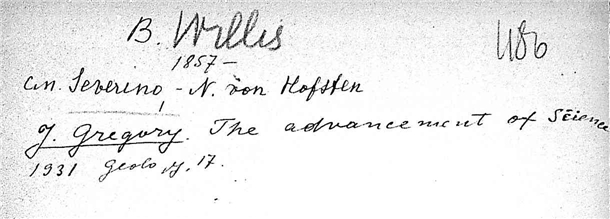 B. Willis
486
1857-
см. Severino, - N. von Hofsten
J. Gregory. The advancement of Science
1931 Geolog, 17.